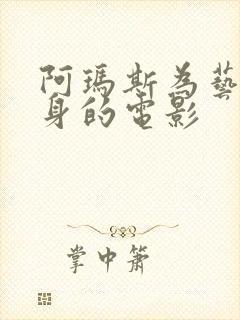 阿瑪斯為藝
身的電影
掌中簫